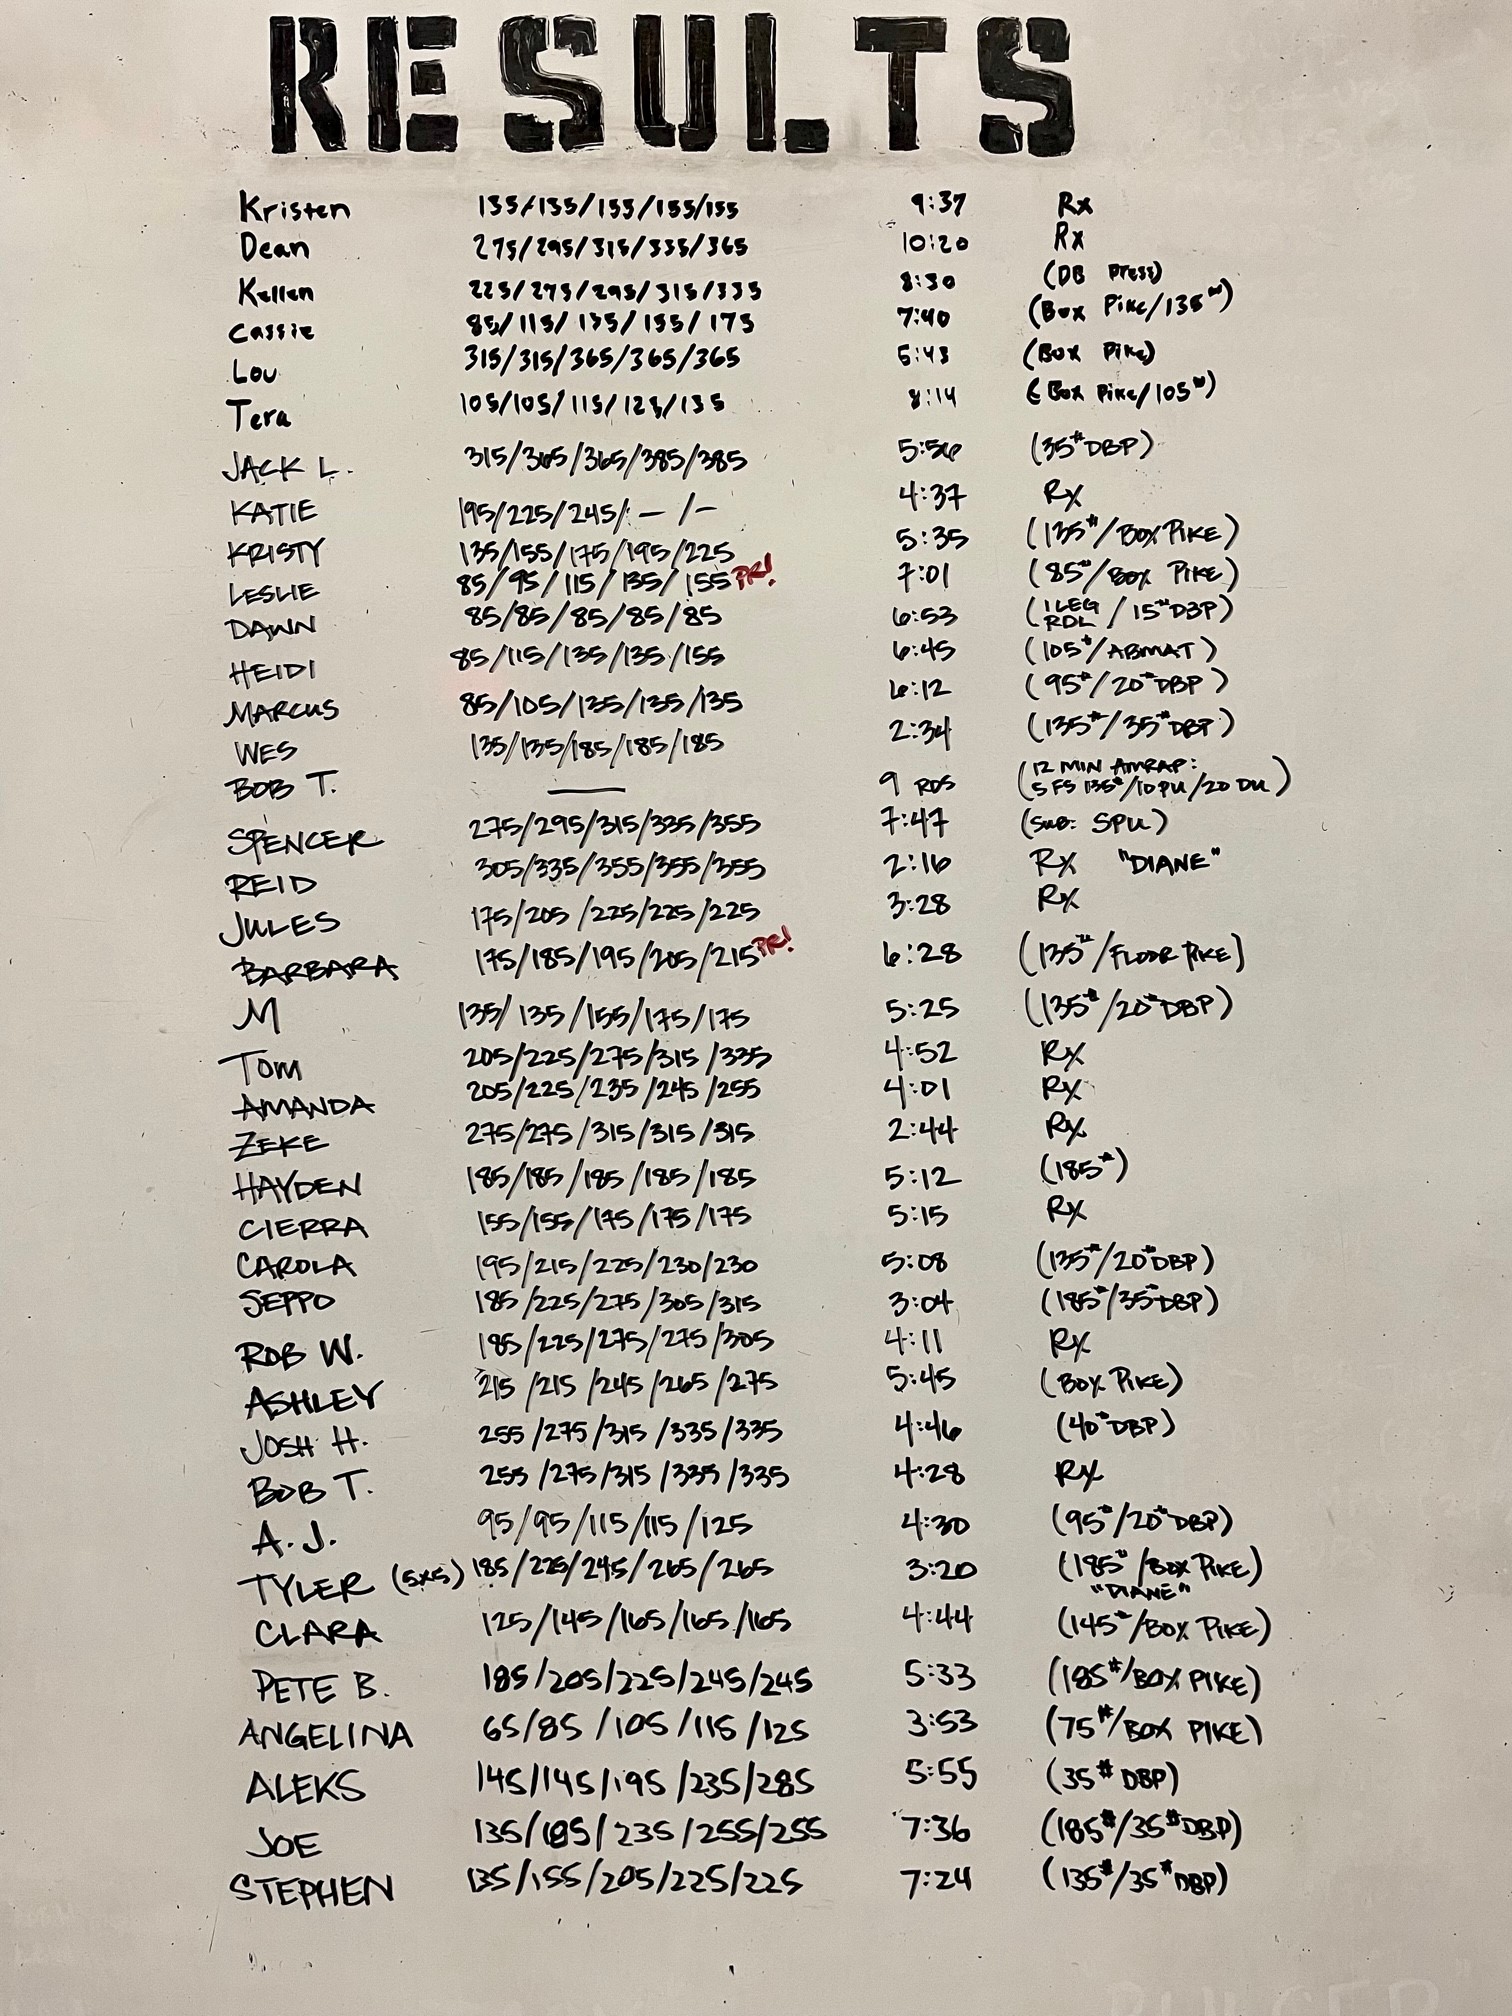 RESULTS
Kristen 135/135/155/155/155 9:37 Rx
Dean 275/295/315/335/365 10:20 Rx
Kellen 225/275/295/315/335 8:30 (DB Press)
Cassie 85/115/135/155/175 7:40 (Box Pike/135#)
Lou 315/315/365/365/365 5:43 (Box Pike)
Tera 105/105/115/125/135 8:14 (Box Pike/105#)
JACK L. 315/365/365/385/385 5:56 (35# DBP)
KATIE 195/225/245/ — / — 4:37 Rx
KRISTY 135/155/175/195/225 5:35 (135#/BOX PIKE)
LESLIE 85/95/115/135/155 PR! 7:01 (85#/BOX PIKE)
DAWN 85/85/85/85/85 6:53 (1 LEG RDL / 15# DBP)
HEIDI 85/115/135/135/155 6:45 (105#/ABMAT)
MARCUS 85/105/135/135/135 6:12 (95#/20# DBP)
WES 135/135/185/185/185 2:34 (135#/35# DBP)
BOB T. — 9 RDS (12 MIN AMRAP: 5 FS 135#/10 PU/20 DU)
SPENCER 275/295/315/335/355 7:47 (SUB: SPU)
REID 305/335/355/355/355 2:16 Rx "DIANE"
JULES 175/205/225/225/225 3:28 Rx
BARBARA 175/185/195/205/215 PR! 6:28 (135#/FLOOR PIKE)
M 135/135/155/175/175 5:25 (135#/20# DBP)
TOM 205/225/275/315/335 4:52 Rx
AMANDA 205/225/235/245/255 4:01 Rx
ZEKE 275/275/315/315/315 2:44 Rx
HAYDEN 185/185/185/185/185 5:12 (185#)
CIERRA 155/155/175/175/175 5:15 Rx
CAROLA 195/215/225/230/230 5:08 (135#/20# DBP)
SEPPO 185/225/275/305/315 3:04 (185#/35# DBP)
ROB W. 185/225/275/275/305 4:11 Rx
ASHLEY 215/215/245/265/275 5:45 (BOX PIKE)
JOSH H. 255/275/315/335/335 4:46 (40# DBP)
BOB T. 255/275/315/335/335 4:28 Rx
A.J. 95/95/115/115/125 4:30 (95#/20# DBP)
TYLER (5x5) 185/225/245/265/265 3:20 (185#/BOX PIKE)
"DIANE"
CLARA 125/145/165/165/165 4:44 (145#/BOX PIKE)
PETE B. 185/205/225/245/245 5:33 (185#/BOX PIKE)
ANGELINA 65/85/105/115/125 3:53 (75#/BOX PIKE)
ALEKS 145/145/195/235/285 5:55 (35# DBP)
JOE 135/185/235/255/255 7:36 (185#/35# DBP)
STEPHEN 135/155/205/225/225 7:24 (135#/35# DBP)